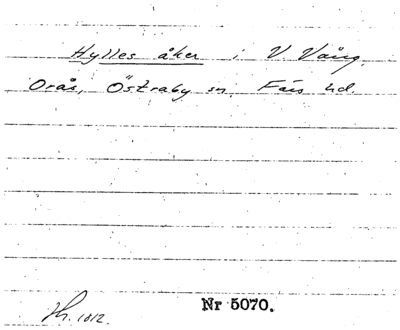 Hylles åker i V. Vång.
Orås, Östraby sn. Färs hd.
Nr 5070.